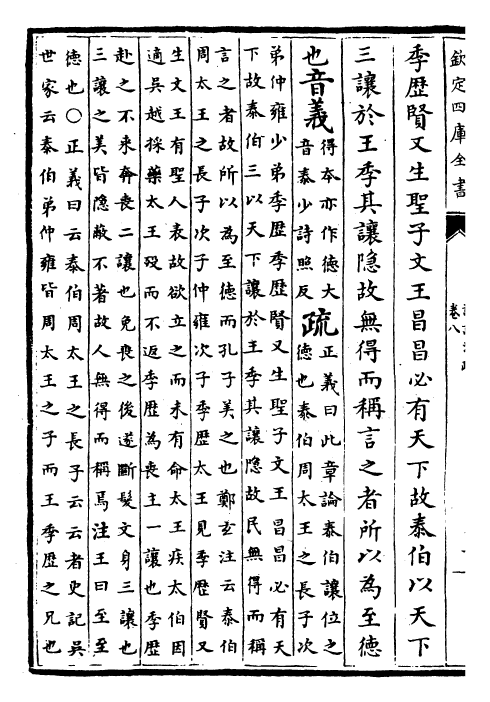 欽定四庫全書
卷八
季歴賢又生聖子文王昌昌必有天下故泰伯以天下
三讓於王季其讓隠故無得而稱言之者所以為至徳
也音義
得本亦作徳大
音泰少詩照反
疏
正義曰此章論泰伯讓位之
徳也泰伯周太王之長子次
弟仲雍少弟季歴季歴賢又生聖子文王昌昌必有天
下故泰伯三以天下讓於王季其讓隠故民無得而稱
言之者故所以為至徳而孔子美之也鄭玄注云泰伯
周太王之長子次子仲雍次子季歴太王見季歴賢又
生文王有聖人表故欲立之而未有命太王疾太伯因
適吳越採藥太王歿而不返季歴為喪主一讓也季歴
赴之不來奔喪二讓也免喪之後遂斷髮文身三讓也
三讓之美皆隠蔽不著故人無得而稱焉注王曰至至
徳也○正義曰云泰伯周太王之長子云云者史記吳
世家云泰伯弟仲雍皆周太王之子而王季歴之兄也